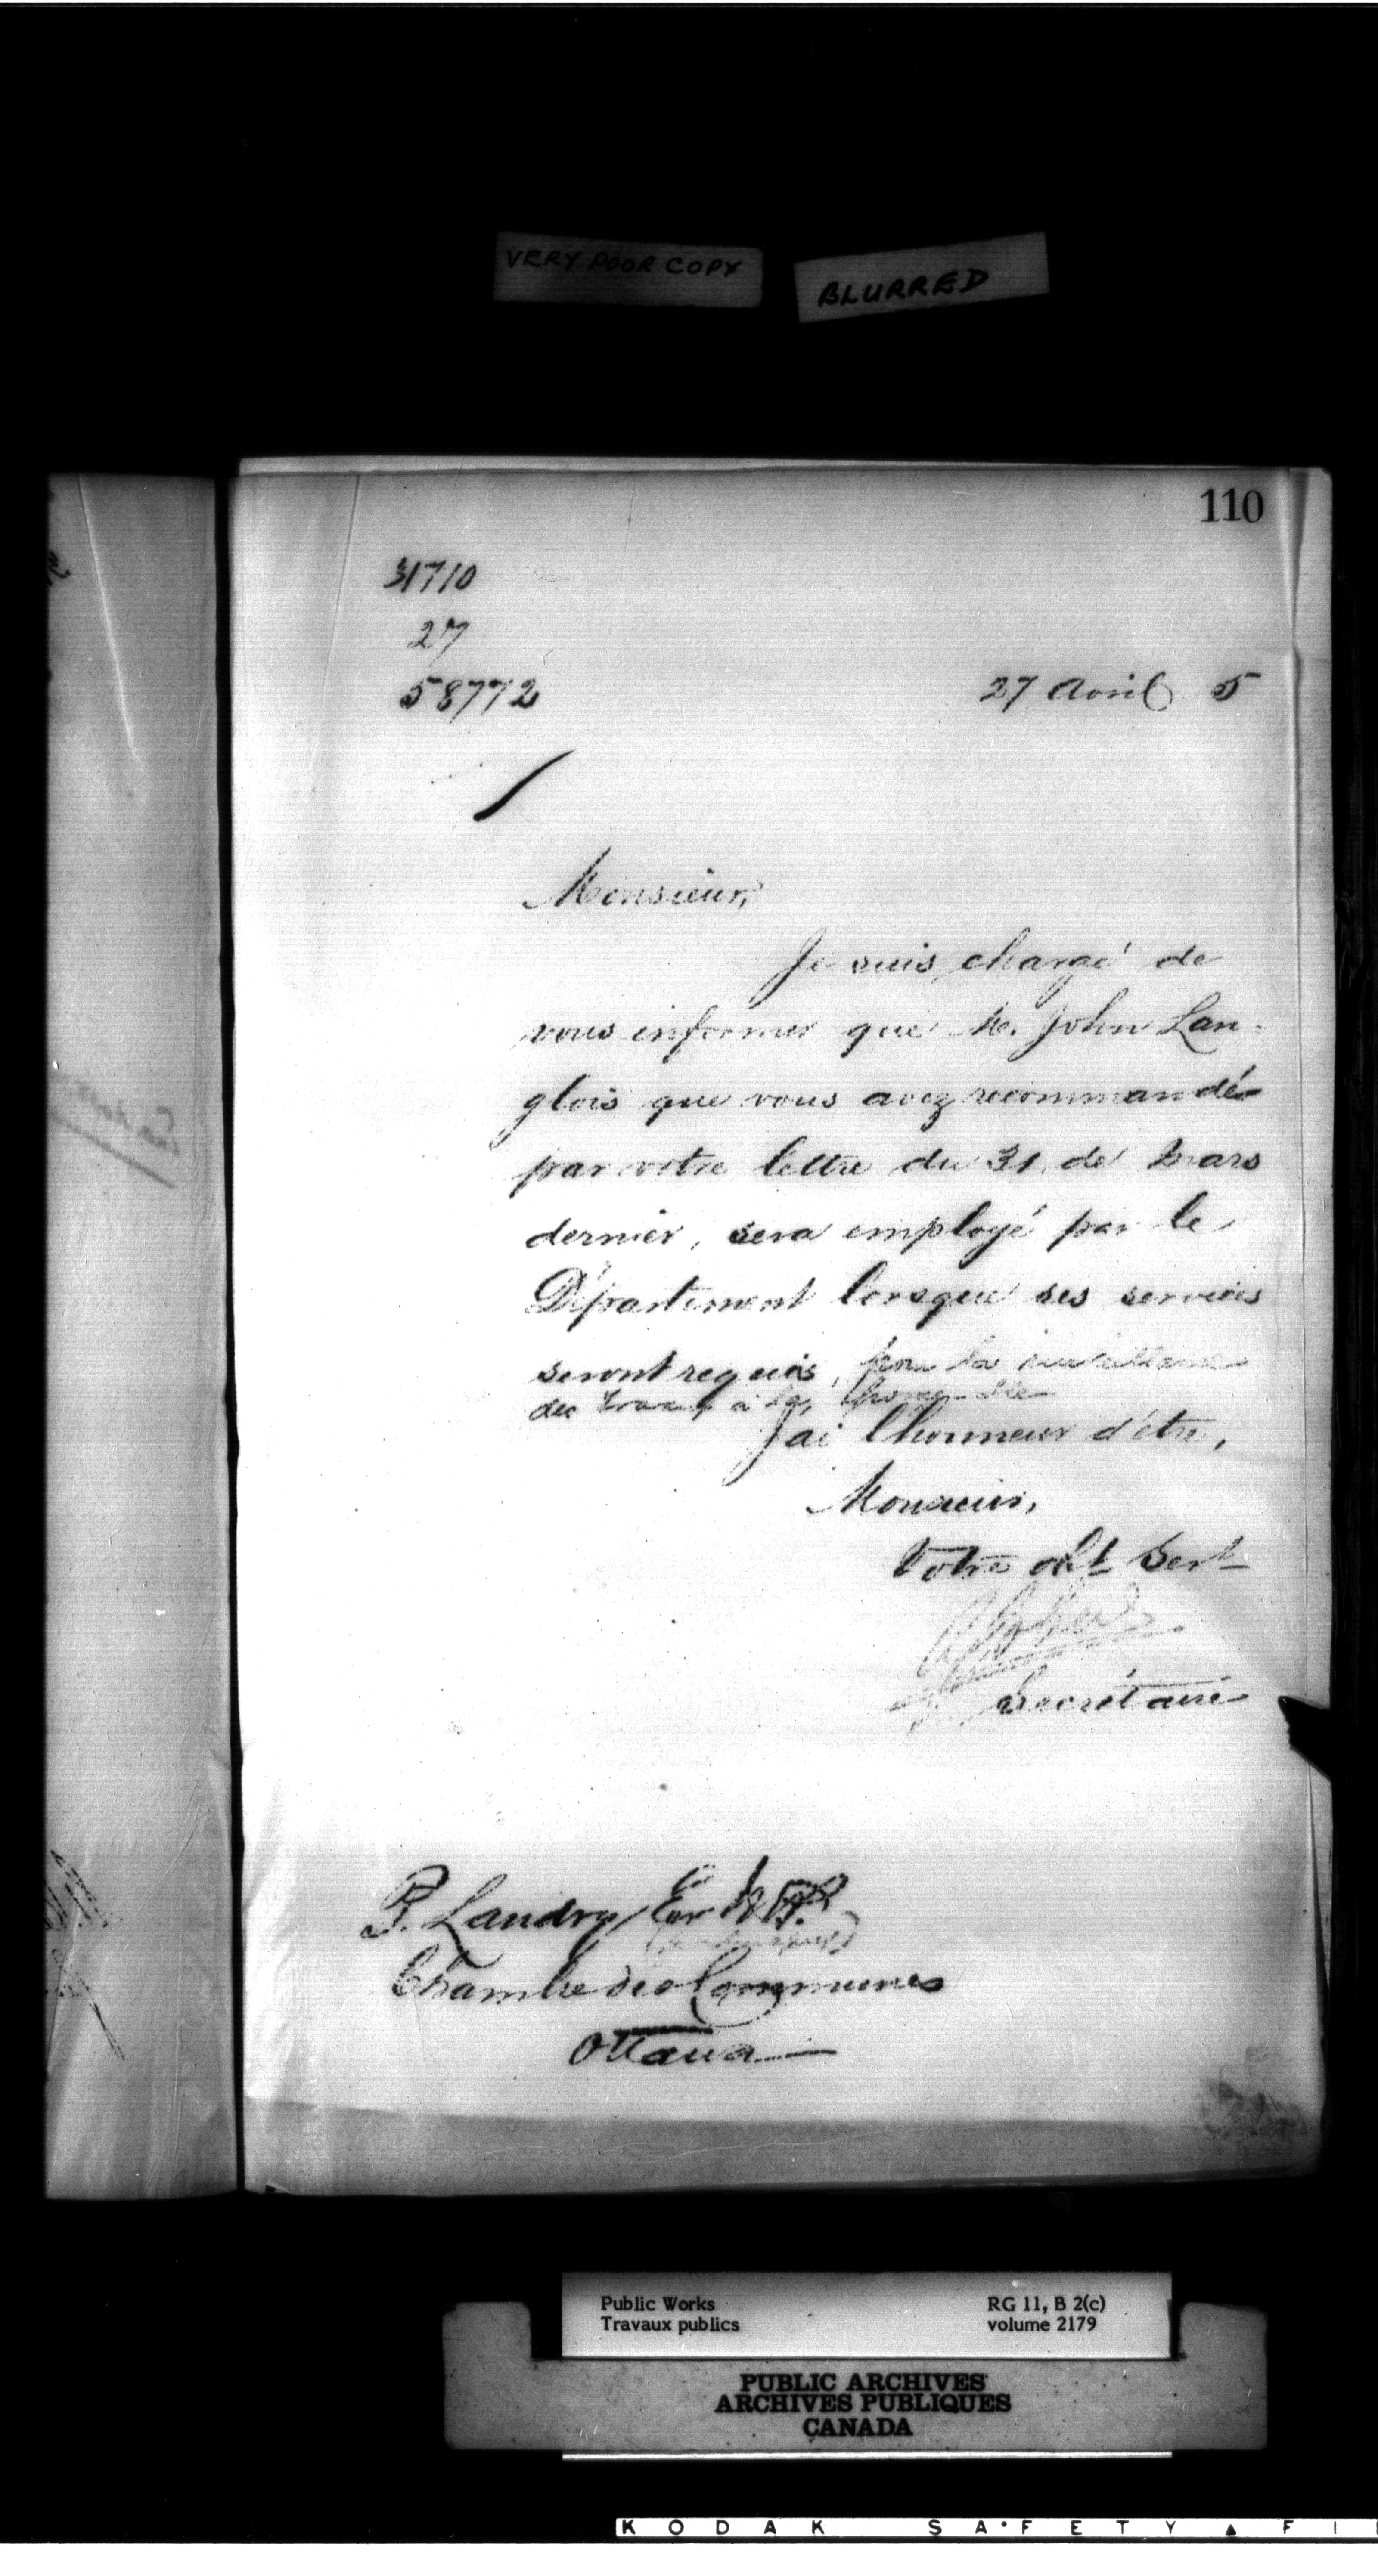 VERY POOR COPY
BLURRED
110
31710
27
58772
27 Avril 5
Monsieur,
Je suis chargé de
vous informer que M. John Lan-
glois que vous avez recommandé
par votre lettre du 31 de Mars
dernier, sera employé par le
Département lorsque ses services
seront requis, pour la surveillance
des travaux à la
J'ai l'honneur d'être,
Monsieur,
Votre obt Sert
Secrétaire
P. Landry Esr M.P.
Chambre des Communes
Ottawa
Public Works
Travaux publics
RG 11, B 2(c)
volume 2179
PUBLIC ARCHIVES
ARCHIVES PUBLIQUES
CANADA
KODAK SAFETY FI